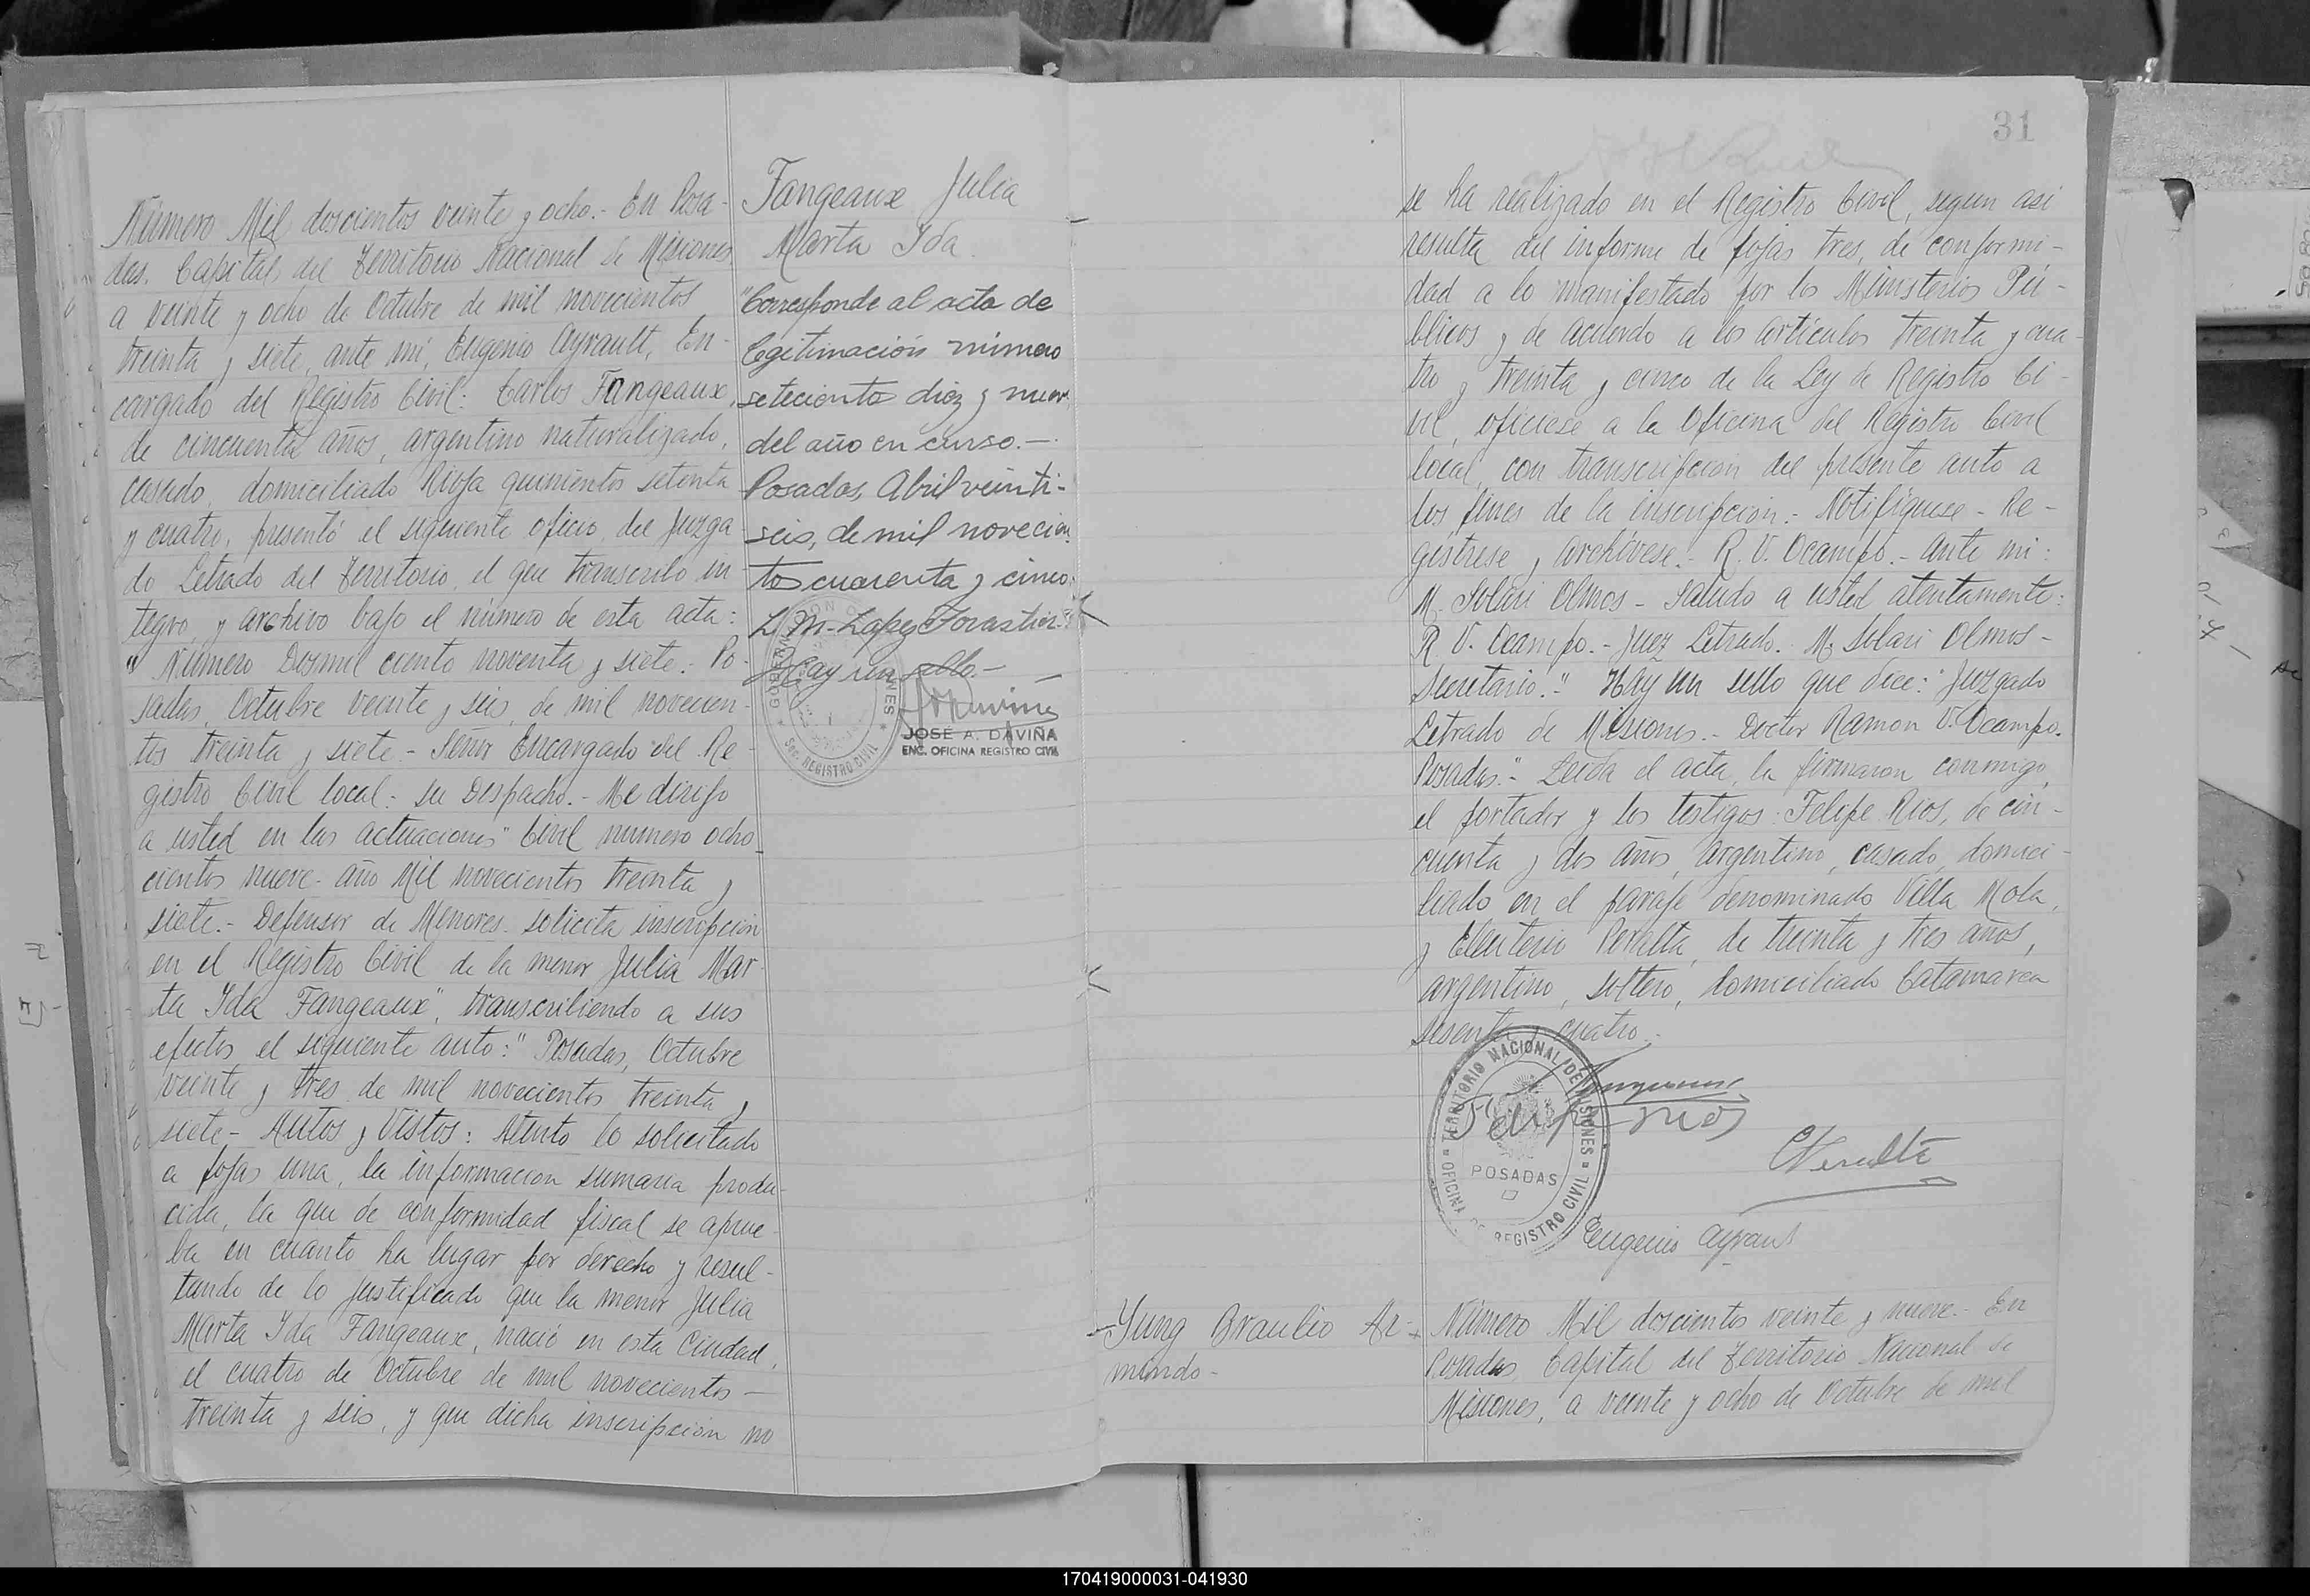 Número Mil doscientos veinte y ocho.- En Posa-
das. Capital del Territorio Nacional de Misiones
a veinte y ocho de Octubre de mil novecientos
treinta y siete, ante mi, Eugenio Ayrault, En-
cargado del Registro Civil: Carlos Fangeaux,
de cincuenta años, argentino naturalizado,
casado, domiciliado Rioja quinientos setenta
y cuatro, presentó el siguiente oficio del Juzga-
do Letrado del Territorio, el que transcribo ín-
tegro, y archivo bajo el número de esta acta:
" Número Dosmil ciento noventa y siete.- Po-
sadas, Octubre veinte y seis, de mil novecien-
tos treinta y siete.- Señor Encargado del Re-
gistro Civil local.- Su Despacho.- Me dirijo
a usted en las actuaciones "Civil numero ocho-
cientos nueve- año Mil novecientos treinta y
siete.- Defensor de Menores- solicita inscripción
en el Registro Civil de la menor Julia Mar-
ta Ida Fangeaux", transcribiendo a sus
efectos el siguiente auto:" Posadas, Octubre
veinte y tres de mil novecientos treinta y
siete- Autos y Vistos: Atento lo solicitado
a fojas una, la informacion sumaria produ-
cida, la que de conformidad fiscal se aprue-
ba en cuanto ha lugar por derecho y resul-
tando de lo justificado que la menor Julia
Marta Ida Fangeaux, nació en esta Ciudad,
el cuatro de Octubre de mil novecientos-
treinta y seis, y que dicha inscripción no
Fangeaux Julia
Marta Ida.
"Corresponde al acta de
legitimación número
setecientos diez y nuev
del año en curso.-
Posadas, Abril veinti-
seis, de mil novecien-
tos cuarenta y cinco.
L. M. Lopez Forastier.
Hay un sello.-
GOBERNACION DE MISIONES
Sec. REGISTRO CIVIL
JOSÉ A. DAVIÑA
ENC. OFICINA REGISTRO CIVIL
31
se ha realizado en el Registro Civil, segun asi
resulta del informe de fojas tres, de conformi-
dad a lo manifestado por los Ministerios Pú-
blicos y de acuerdo a los artículos treinta y cua-
tro y treinta y cinco de la Ley de Registro Ci-
vil, ofíciese a la Oficina del Registro Civil
local, con transcripcion del presente auto a
los fines de la inscripcion.- Notifíquese- Re-
gístrese y archívese.- R. V. Ocampo.- Ante mi:
M. Solari Olmos- Saludo a usted atentamente:
R. V. Ocampo.- Juez Letrado.- M. Solari Olmos-
Secretario." Hay un sello que dice: "Juzgado
Letrado de Misiones.- Doctor Ramon V. Ocampo.
Posadas."- Leída el acta, la firmaron conmigo,
el portador y los testigos: Felipe Rios, de cin-
cuenta y dos años, argentino, casado, domici-
liado en el paraje denominado Villa Mola,
y Eleuterio Peralta, de treinta y tres años,
argentino, soltero, domiciliado Catamarca
sesenta y cuatro.-
Felipe Rios
TERRITORIO NACIONAL DE MISIONES
POSADAS
OFICINA DE REGISTRO CIVIL
EPeralta
Eugenio Ayrault
Yung Braulio Ar-
mindo-
Número Mil doscientos veinte y nueve.- En
Posadas, Capital del Territorio Nacional de
Misiones, a veinte y ocho de Octubre de mil
170419000031-041930